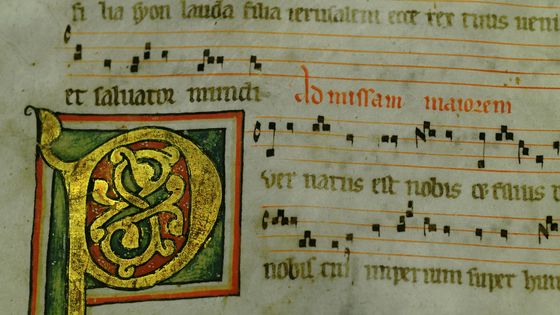 fi lia syon lauda filia ierusalem ecce rex tuus veni
et saluator mundi Ad missam maiorem
P uer natus est nobis et filius
nobis cuius imperium super hum